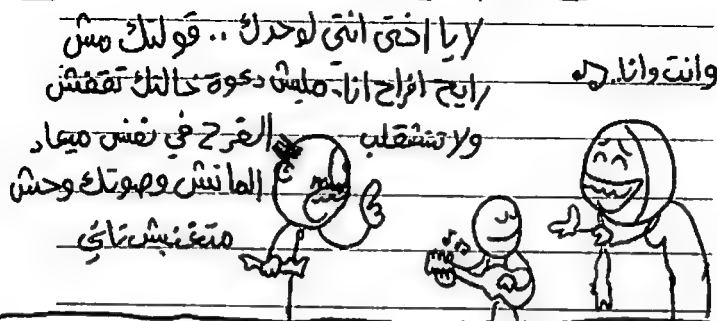 وانت وانا..
لا يا اختي انتي لوحدك .. قولتلك مش
رايح افراح انا، مليش دعوة خالتك تقفش
ولا تتشقلب الفرح في نفس ميعاد
الماتش وصوتك وحش
متغنيش تاني